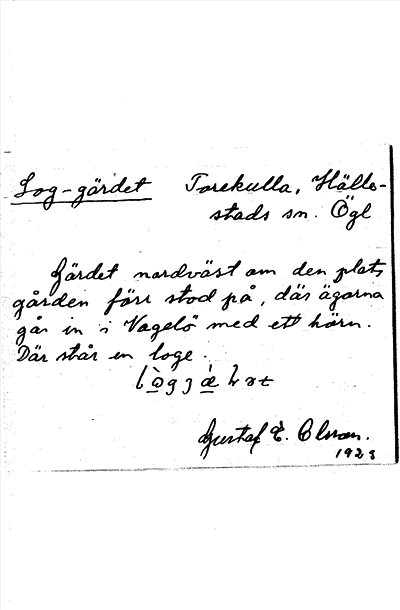 Log-gärdet Torekulla, Hälle-
stads sn. Ögl
Gärdet nordväst om den plats
gården förr stod på, där ägorna
går in i Vagelö med ett hörn.
Där står en loge.
Gustaf E. Olsson.